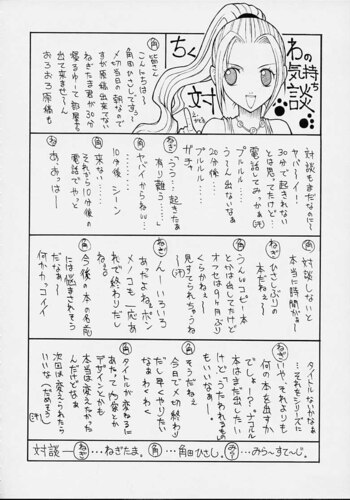 わの気持ち
ちく対談
角 皆さん
こんにちは〜
角田ひさしです。
〆切当日の朝なので
すが原稿が出来てない
ねぎたま君が30分
寝るゆーて部屋から
出て来ませーん
おろおろ原稿も
対談もまだなのに〜
ヤバーイー!
30分で起きれない
と思ってたけど…
プルルル…
う〜ん出ないなぁ
20分後…
プルルル
ガチャ
ねぎ うう…起きたぁ
有り難う……
角 ヤバイからねw…
10分後 シーン
角 来ない…
それから10分後の
電話でやっと
ねぎ あ、おっはー
角 対談しないと
本当に時間がぁ〜
ねぎ ひさしぶりの
本だねぇ〜
角 うんwコピー本
とかは出してたけど
オフセは9ヶ月ぶり
くらかねぇ〜
見すてられちゃうね
ねぎ んーいろいろ
あったよね。ボン
メノコも一応あ
れで終わりだし
角 今後の本の名前
には悩まされそう
だなぁ。
何かカッコイイ
タイトルないかなぁ
…それをシリーズに
ねぎ いや、それよりも
何の本を出すか
でしょ!?ナコルル
本はまだ出したい
けど、うたわれるも
もいいなぁー。
角 そうだねぇ
今日で〆切終わり
だし早くやりたい
なぁわくわく
角 タイトルが変わるに
あたって内容とか
デザインとかも
本当は変えたかった
んだけどなぁ
次回は変えられたら
いいなぁ
対談― ねぎ…ねぎたま。 角…角田ひさし。 みら…みら〜すて〜じ。